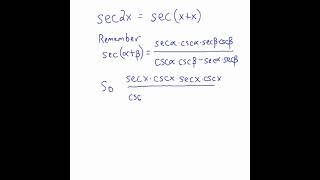 sec2x = sec(x+x)
Remember
sec(α+β) = secα·cscα·secβ cscβ / cscα·cscβ - secα·secβ
So secx·cscx secx·cscx / csc